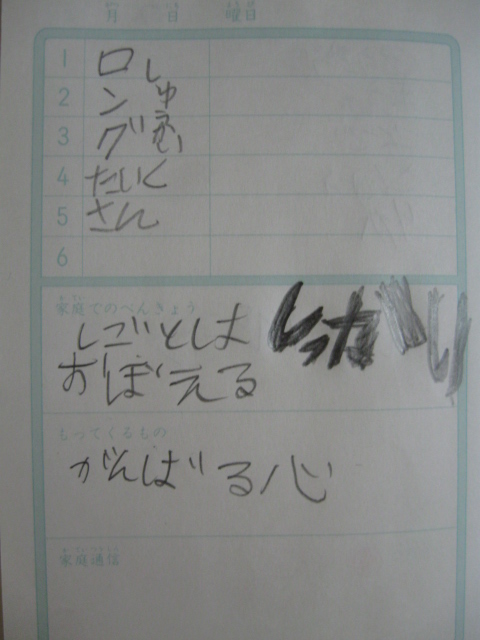 月 日 曜日
1 ロし
2 ンゆ
3 グう
4 たいく
5 さん
6
家庭でのべんきょう
しごとは しっかり
おぼえる
もってくるもの
がんばる心
家庭通信